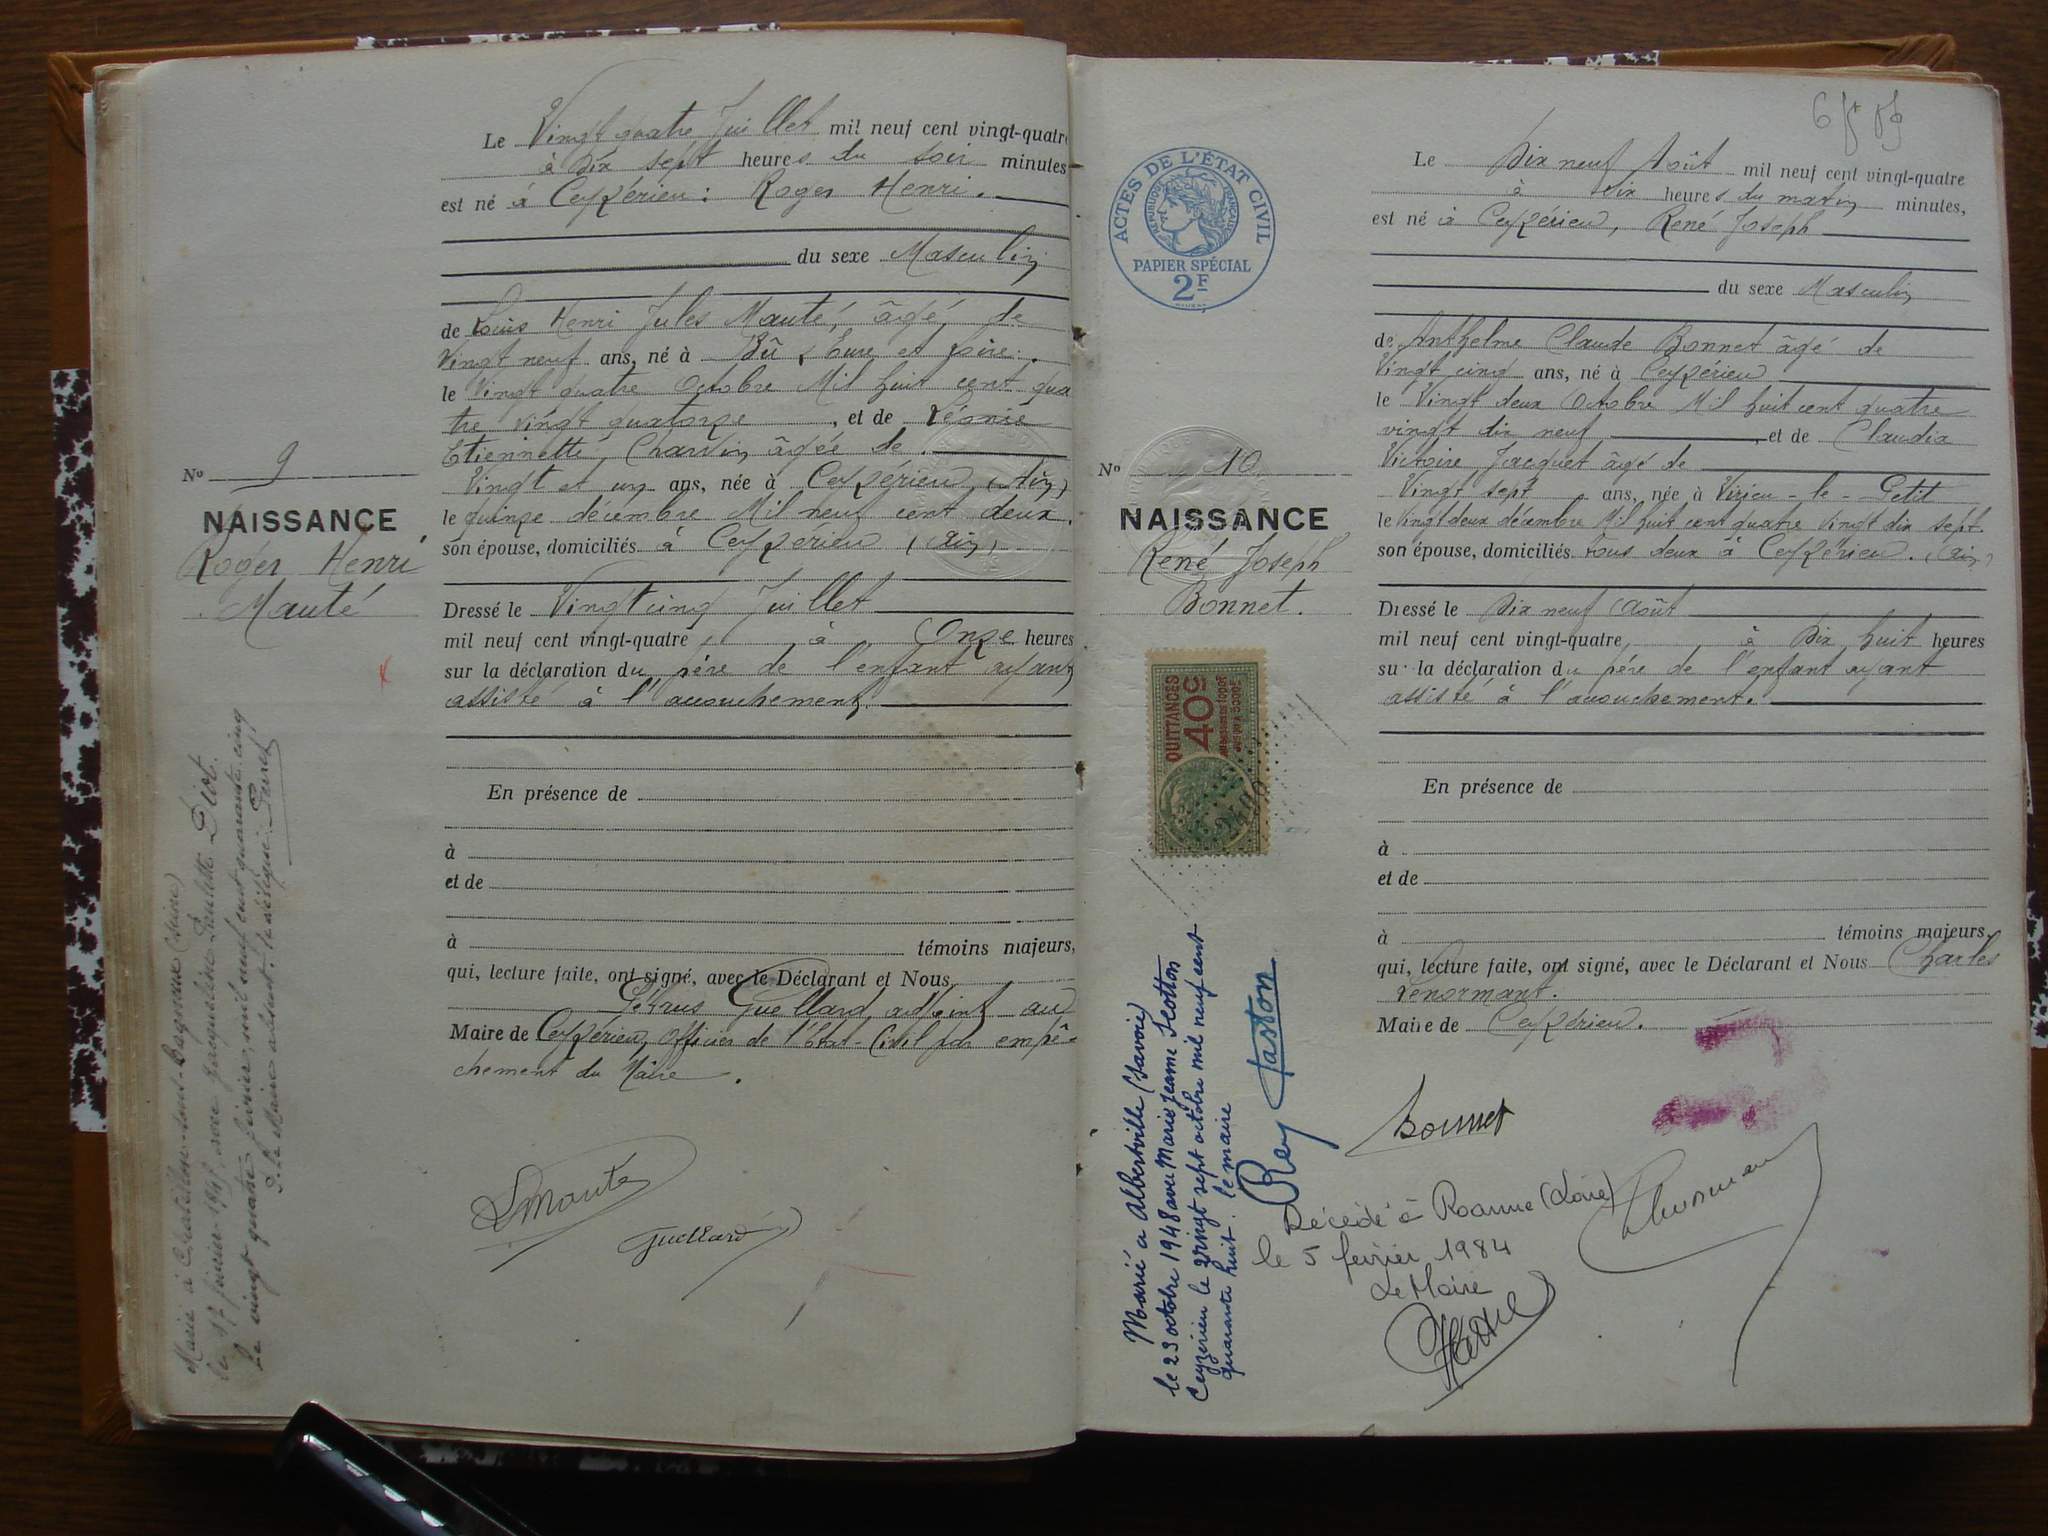 Le Vingt quatre Juillet mil neuf cent vingt-quatre
à Dix sept heures du soir minutes
est né à Ceyzérieu : Roger Henri.
du sexe Masculin
de Louis Henri Jules Mauté, âgé de
Vingt neuf ans, né à Bû, Eure et Loire.
le Vingt quatre Octobre Mil huit cent qua
tre vingt quatorze, et de Léonie
Etiennette Chardin âgée de
Vingt et un ans, née à Ceyzérieu (Ain)
le quinze décembre Mil neuf cent deux.
son épouse, domiciliés à Ceyzérieu (Ain)
Dressé le Vingt cinq Juillet
mil neuf cent vingt-quatre, à Onze heures
sur la déclaration du père de l'enfant ayant
assisté à l'accouchement.
En présence de
à
et de
à témoins majeurs,
qui, lecture faite, ont signé, avec le Déclarant et Nous
Guillard, adjoint au
Maire de Ceyzérieu, Officier de l'Etat-Civil par empê-
chement du Maire.
LMauté
Guillard
No 9
NAISSANCE
Roger Henri
Mauté
Marié à Chatillon-sous-Bagneux (Seine)
le 17 février 1945 avec Jacqueline Paulette Diot.
Le vingt quatre février mil neuf cent quarante cinq
P. le Maire absent. le délégué :
6
ACTES DE L'ÉTAT CIVIL
RÉPUBLIQUE FRANÇAISE
PAPIER SPÉCIAL
2F
No 10
NAISSANCE
René Joseph
Bonnet.
QUITTANCES
40c
Le Dix neuf Août mil neuf cent vingt-quatre
à dix heures du matin minutes,
est né à Ceyzérieu, René Joseph
du sexe Masculin
de Anthelme Claude Bonnet âgé de
Vingt cinq ans, né à Ceyzérieu
le Vingt deux Octobre Mil huit cent quatre
vingt dix neuf, et de Claudia
Victoire Jacquet âgé de
Vingt sept ans, née à Virieu-le-Petit
le Vingt deux décembre Mil huit cent quatre vingt dix sept.
son épouse, domiciliés tous deux à Ceyzérieu. (Ain)
Dressé le Dix neuf Août
mil neuf cent vingt-quatre, à Dix huit heures
sur la déclaration du père de l'enfant ayant
assisté à l'accouchement.
En présence de
à
et de
à témoins majeurs,
qui, lecture faite, ont signé, avec le Déclarant et Nous Charles
Lenormant.
Maire de Ceyzérieu.
Bonnet
Marié à Albertville (Savoie)
le 23 octobre 1948 avec Marie Jeanne Scotton
Ceyzérieu le vingt sept octobre mil neuf cent
quarante huit. le maire
Rey Gaston
Décédé à Roanne (Loire)
le 5 février 1984
Le Maire